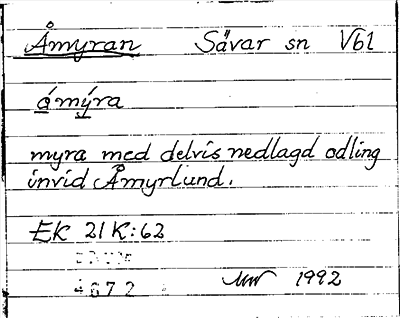 Åmyran Sävar sn Vbl
ómýra
myra med delvis nedlagd odling
invid Åmyrlund.
Ek 21K:62
4672
1992